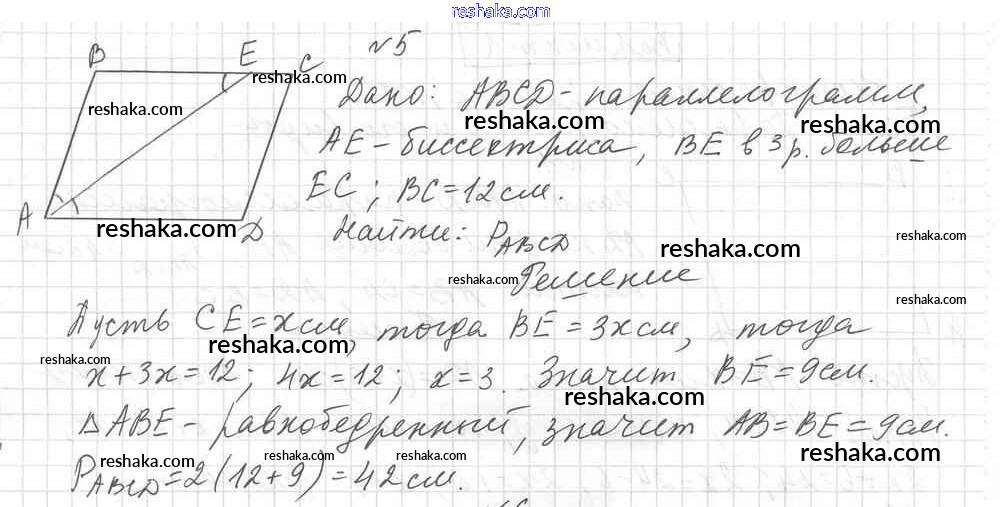 reshaka.com
№5
B E C
reshaka.com
reshaka.com
Дано: ABCD - параллелограмм,
reshaka.com reshaka.com
AE - биссектриса, BE в 3 р. больше
EC; BC = 12 см.
reshaka.com
A D
reshaka.com
Найти: P_ABCD
reshaka.com
reshaka.com
Решение
reshaka.com
reshaka.com
Пусть CE = x см, тогда BE = 3x см, тогда
reshaka.com
reshaka.com
x + 3x = 12; 4x = 12; x = 3. Значит BE = 9 см.
reshaka.com
reshaka.com
△ABE - равнобедренный, значит AB = BE = 9 см.
reshaka.com reshaka.com reshaka.com reshaka.com
P_ABCD = 2(12+9) = 42 см.